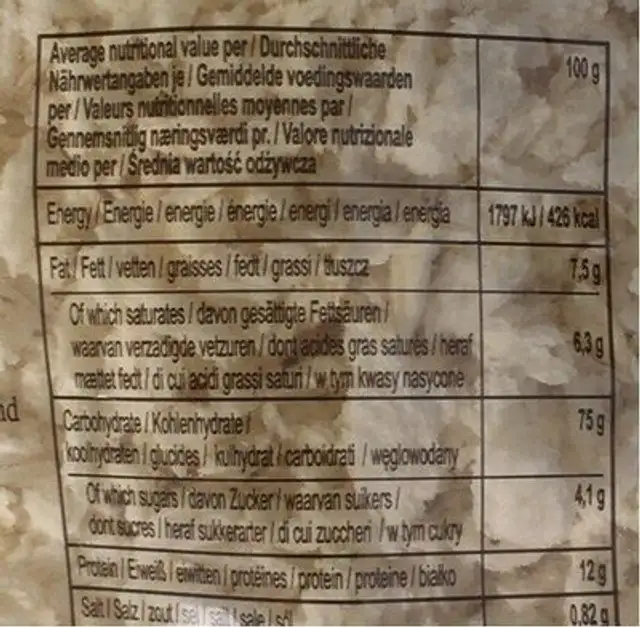 Average nutritional value per / Durchschnittliche
Nährwertangaben je / Gemiddelde voedingswaarden
per / Valeurs nutritionnelles moyennes par /
Gennemsnitlig næringsværdi pr. / Valore nutrizionale
medio per / Średnia wartość odżywcza
100 g
Energy / Energie / energie / énergie / energi / energia / energia
1797 kJ / 426 kcal
Fat / Fett / vetten / graisses / fedt / grassi / tłuszcz
7,5 g
Of which saturates / davon gesättigte Fettsäuren /
waarvan verzadigde vetzuren / dont acides gras saturés / heraf
mættet fedt / di cui acidi grassi saturi / w tym kwasy nasycone
6,3 g
Carbohydrate / Kohlenhydrate /
koolhydraten / glucides / kulhydrat / carboidrati / węglowodany
75 g
Of which sugars / davon Zucker / waarvan suikers /
dont sucres / heraf sukkerarter / di cui zuccheri / w tym cukry
4,1 g
Protein / Eiweiß / eiwitten / protéines / protein / proteine / białko
12 g
Salt / Salz / zout / sel / salt / sale / sól
0,82 g
nd